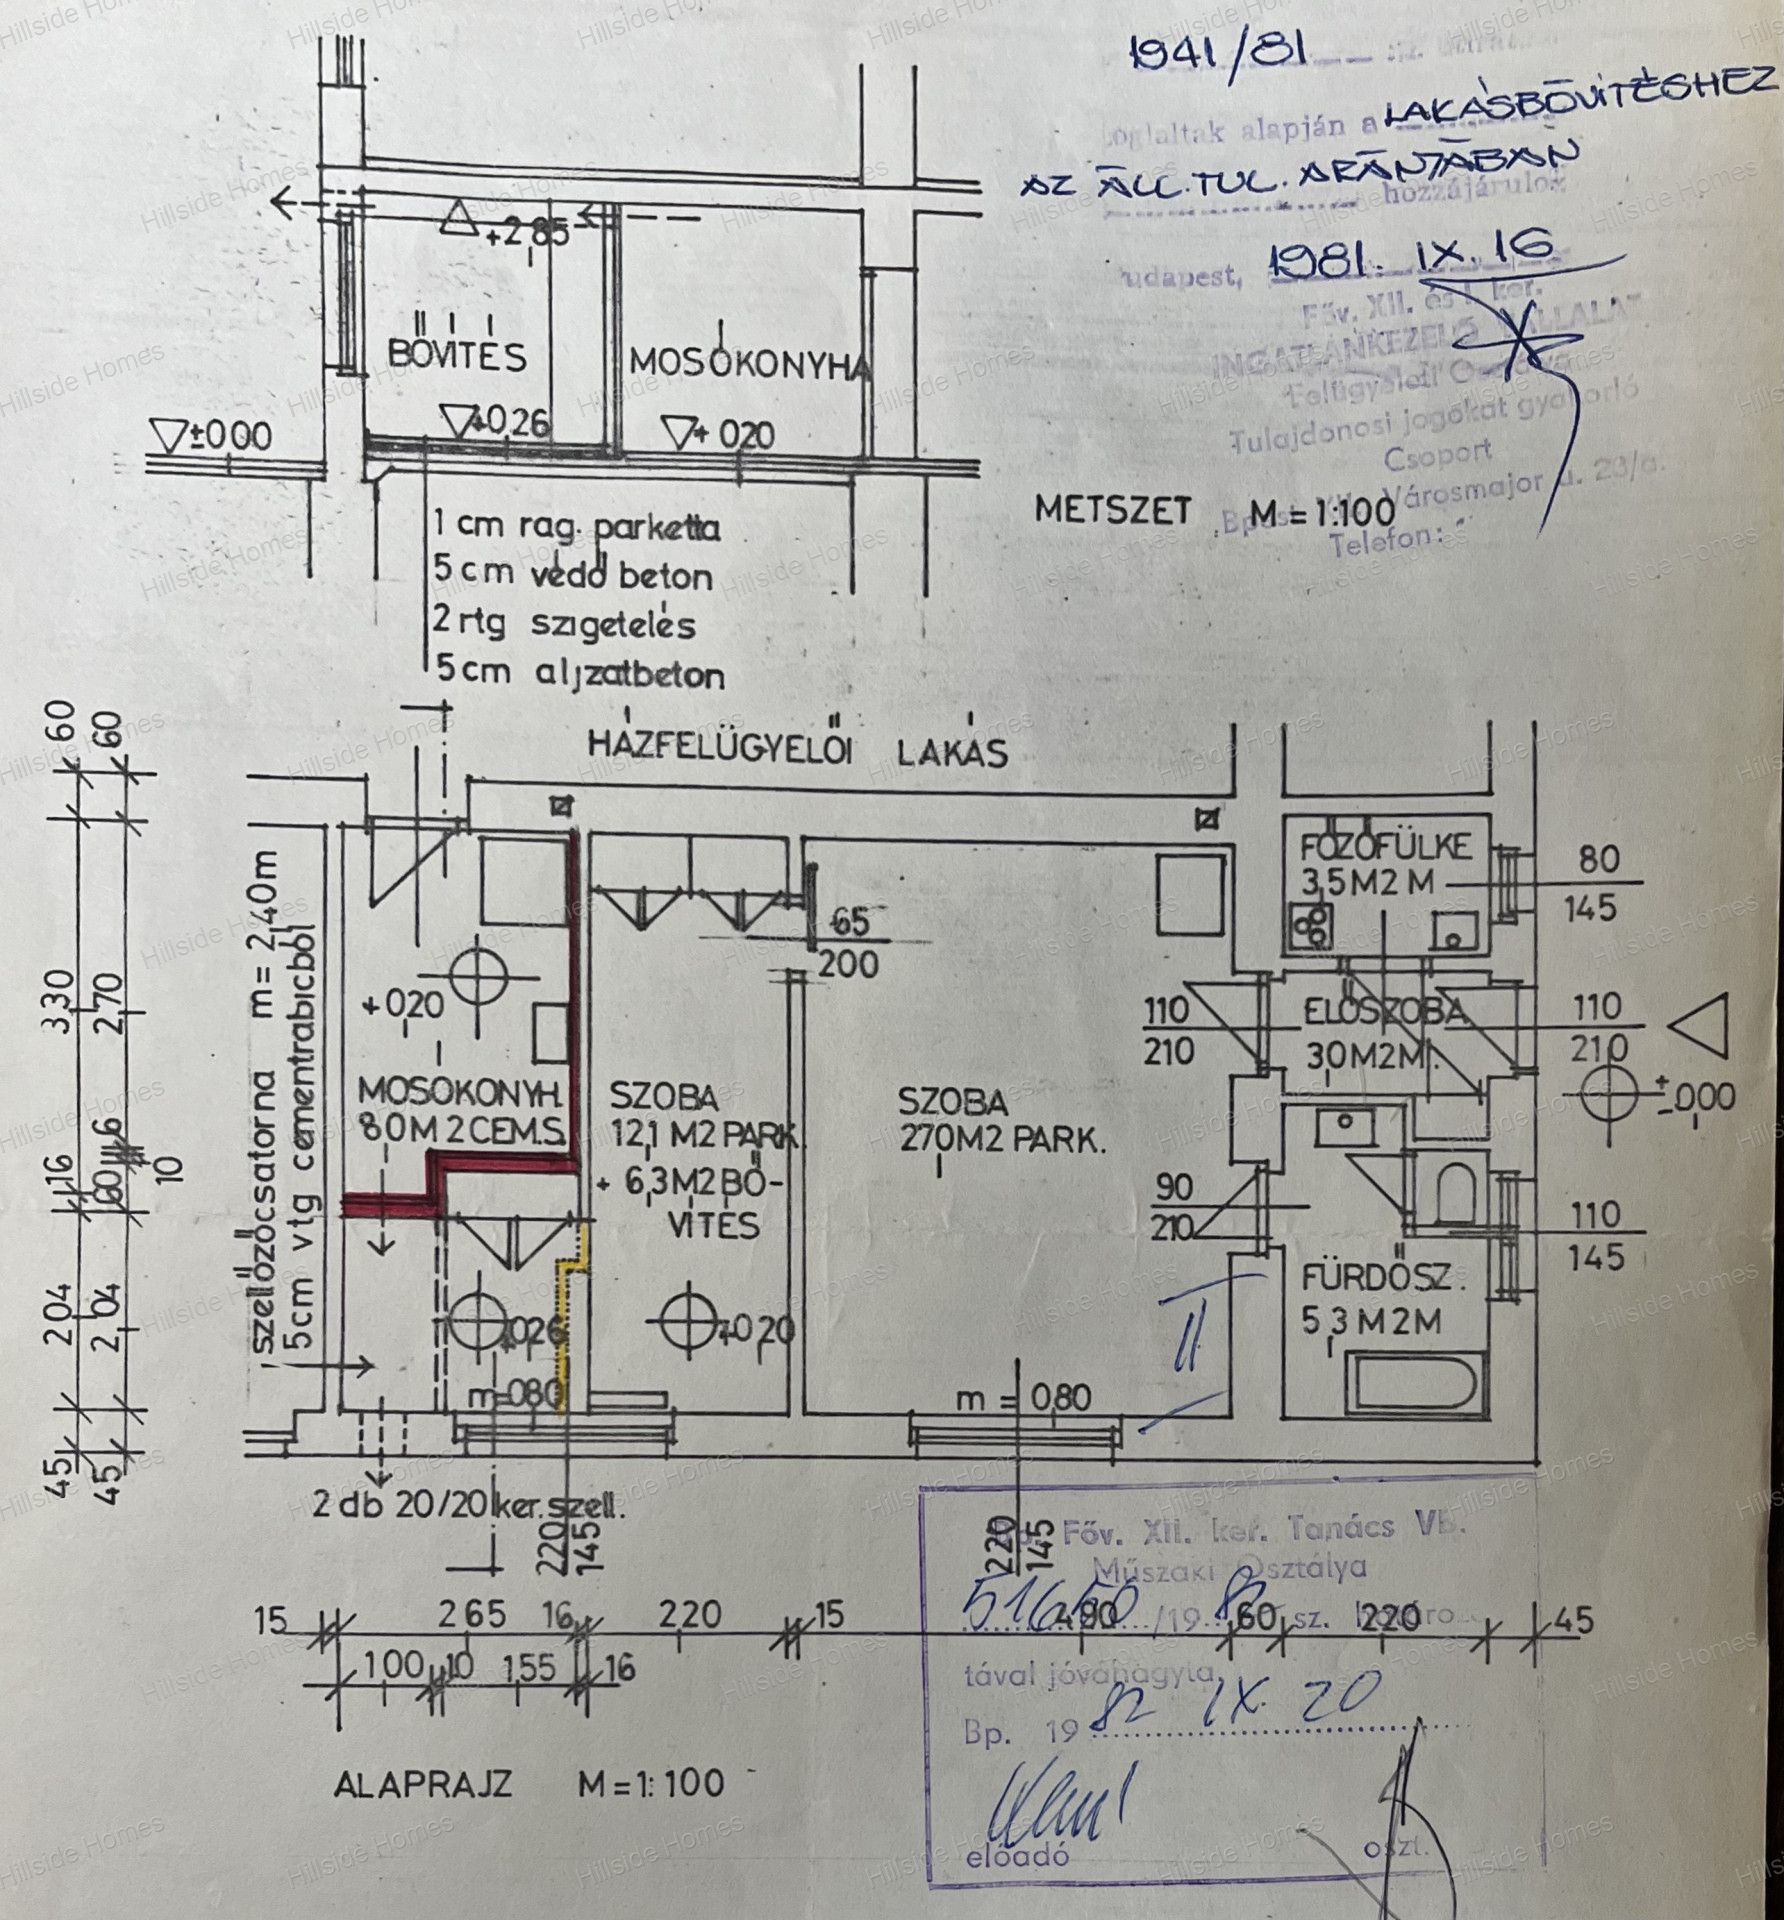 1941/81
foglaltak alapján a LAKÁSBŐVÍTÉSHEZ
AZ ÁLL.TUL. ARÁNYÁBAN
hozzájárulok
udapest, 1981. IX. 16
Főv. XII. és I. ker.
INGATLANKEZELŐ VÁLLALAT
Felügyeleti Osztálya
Tulajdonosi jogokat gyakorló
Csoport
Bpest XII. Városmajor u. 23/a.
Telefon:
+2,85
BŐVÍTÉS
MOSÓKONYHA
±0,00
+0,26
+0,20
METSZET M=1:100
1 cm rag. parketta
5 cm védő beton
2 rtg szigetelés
5 cm aljzatbeton
HÁZFELÜGYELŐI LAKÁS
60
60
3,30
2,70
16
60
6
10
2,04
2,04
45
45
szellőzőcsatorna m=2,40m
5cm vtg cementrabicból
+0,20
MOSÓKONYH.
8,0 M2 CEM.S.
65
200
SZOBA
12,1 M2 PARK.
+ 6,3 M2 BŐ-
VÍTÉS
SZOBA
27,0 M2 PARK.
FŐZŐFÜLKE
3,5 M2 M
80
145
110
210
ELŐSZOBA
3,0 M2 M.
110
210
±0,00
90
210
110
145
FÜRDŐSZ.
5,3 M2 M
+0,26
+0,20
II
m=0,80
m=0,80
2 db 20/20 ker. szell.
220
145
220
145
Főv. XII. ker. Tanács VB.
Műszaki Osztálya
/19 82 sz. határo
tával jóváhagyta.
Bp. 1982 IX. 20
előadó
oszt.
15
265
16
220
15
480
60
220
45
100
10
155
16
ALAPRAJZ M=1:100
Hillside Homes